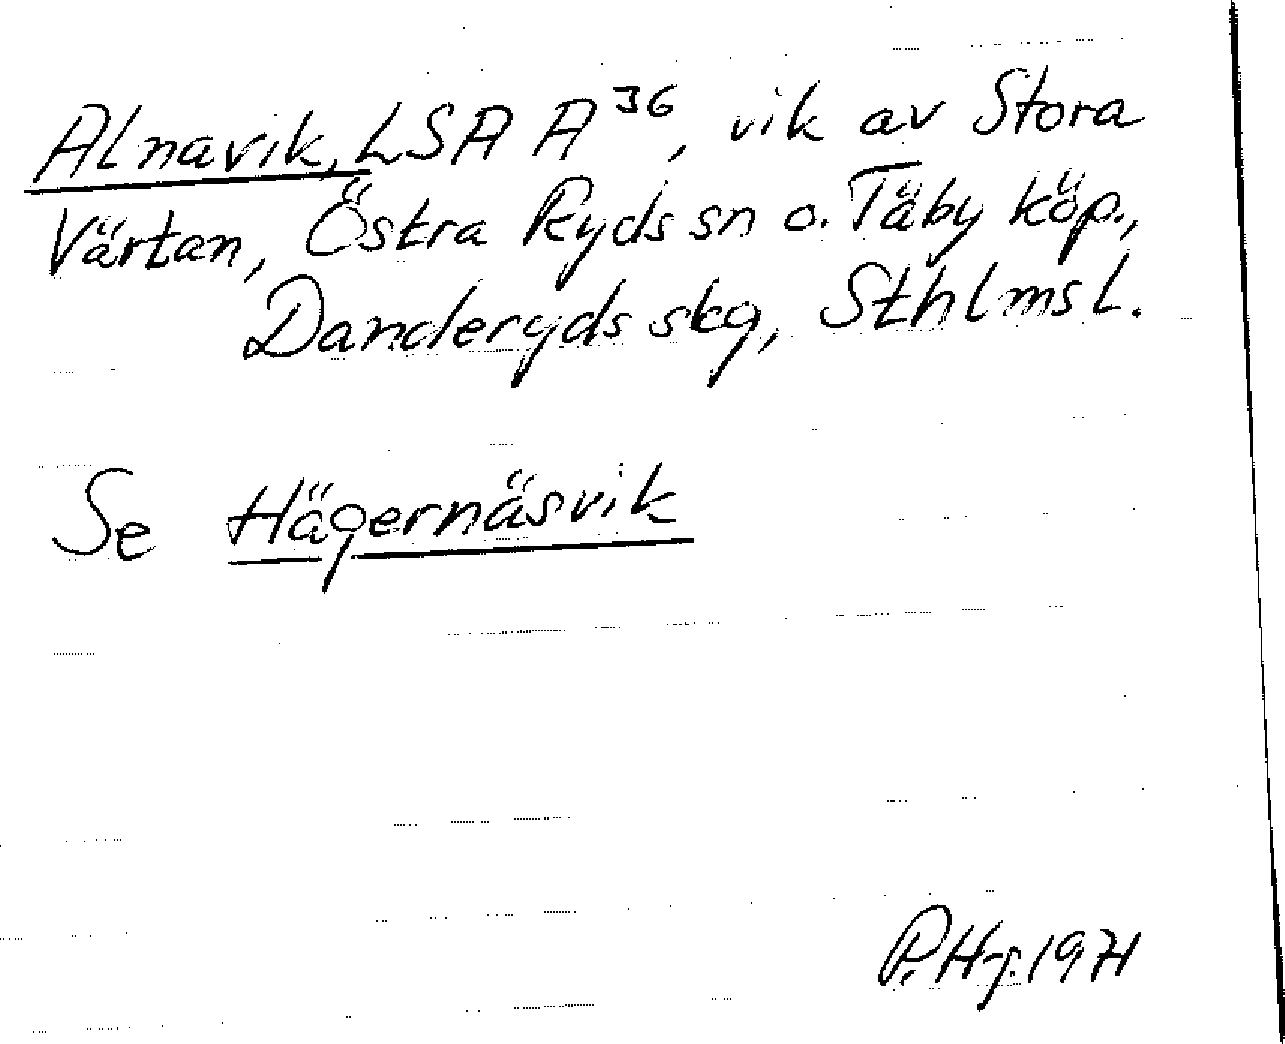 Alnavik, LSA A³⁶, vik av Stora
Värtan, Östra Ryds sn o. Täby köp.,
Danderyds skg, Sthlms l.
Se Hägernäsvik
P. Hj. 1971